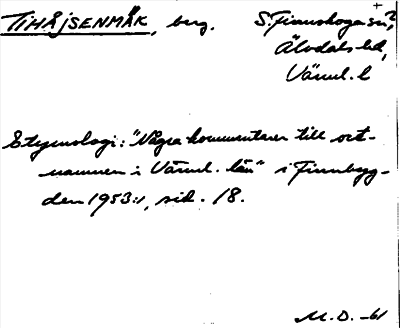 TIHÅJSENMÄK, berg. S. Finnskoga sn?,
Älvdals hd,
Värml. l
Etymologi: "Några kommentarer till ort-
namnen i Värml. län" i Finnbyg-
den 1953:1, sid. 18.
M.D. -61